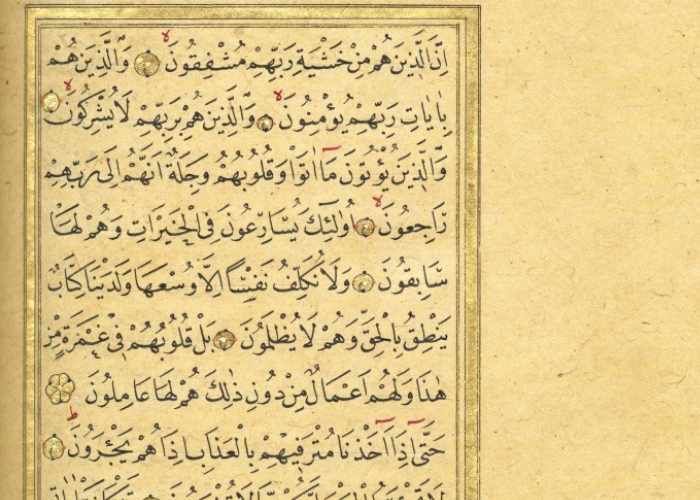 اِنَّ الَّذٖينَ هُمْ مِنْ خَشْيَةِ رَبِّهِمْ مُشْفِقُونَ ۙ وَالَّذٖينَ هُمْ
بِاٰيَاتِ رَبِّهِمْ يُؤْمِنُونَ ۙ وَالَّذٖينَ هُمْ بِرَبِّهِمْ لَا يُشْرِكُونَ ۙ
وَالَّذٖينَ يُؤْتُونَ مَٓا اٰتَوْا وَقُلُوبُهُمْ وَجِلَةٌ اَنَّهُمْ اِلٰى رَبِّهِمْ
رَاجِعُونَ ۙ اُولٰٓئِكَ يُسَارِعُونَ فِي الْخَيْرَاتِ وَهُمْ لَهَا
سَابِقُونَ وَلَا نُكَلِّفُ نَفْسًا اِلَّا وُسْعَهَا وَلَدَيْنَا كِتَابٌ
يَنْطِقُ بِالْحَقِّ وَهُمْ لَا يُظْلَمُونَ بَلْ قُلُوبُهُمْ فٖي غَمْرَةٍ مِنْ
هٰذَا وَلَهُمْ اَعْمَالٌ مِنْ دُونِ ذٰلِكَ هُمْ لَهَا عَامِلُونَ
حَتّٰٓى اِذَٓا اَخَذْنَا مُتْرَفٖيهِمْ بِالْعَذَابِ اِذَا هُمْ يَجْـَٔرُونَ ۜ